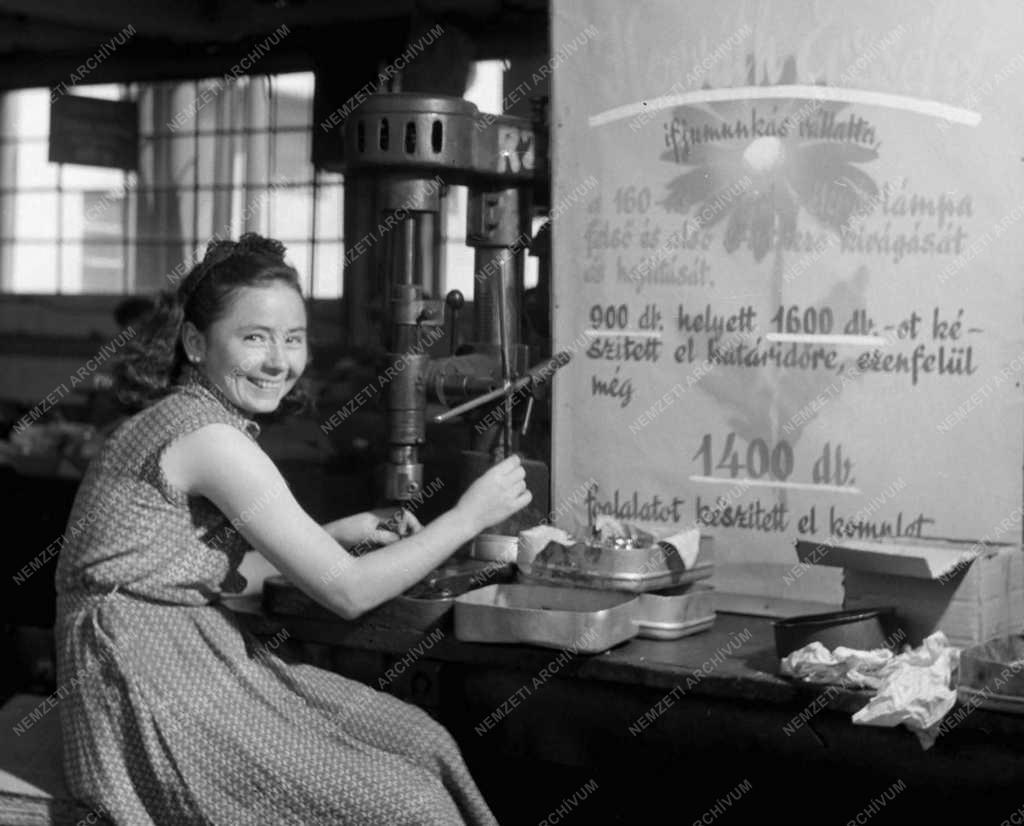 ifjumunkás vállalta,
a 160- lámpa
felső és alsó kivágását
és hajlítását.
900 db. helyett 1600 db.-ot ké-
szített el határidőre, ezenfelül
még
1400 db.
foglalatot készített el komplot
NEMZETI ARCHÍVUM